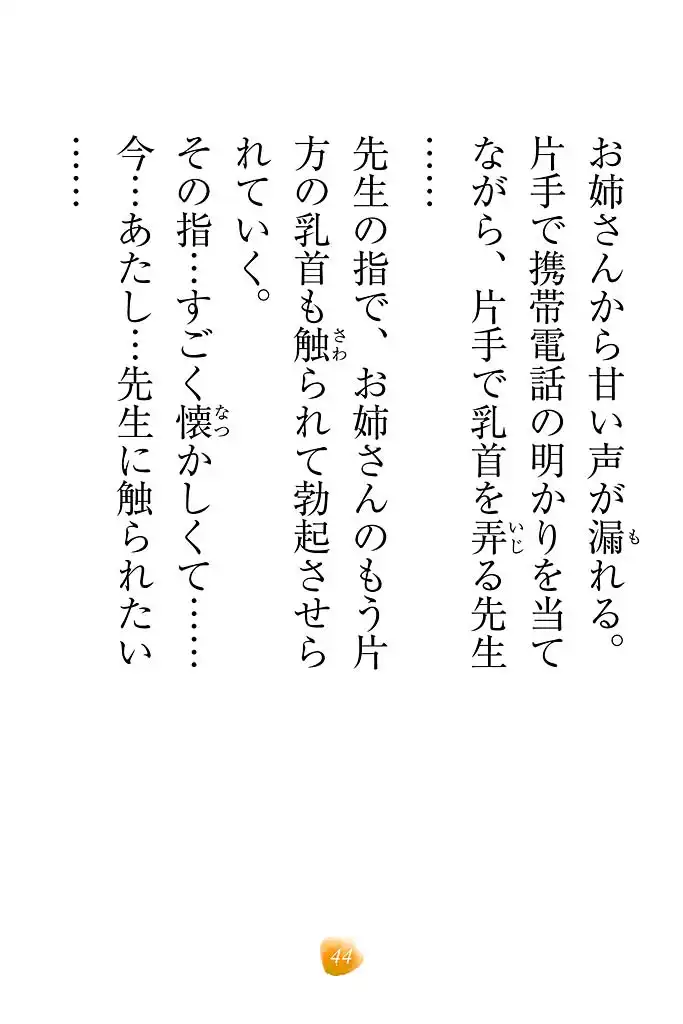 お姉さんから甘い声が漏れる。
片手で携帯電話の明かりを当て
ながら、片手で乳首を弄る先生
……
先生の指で、お姉さんのもう片
方の乳首も触られて勃起させら
れていく。
その指…すごく懐かしくて……
今…あたし…先生に触られたい
……
も
いじ
さわ
なつ
44